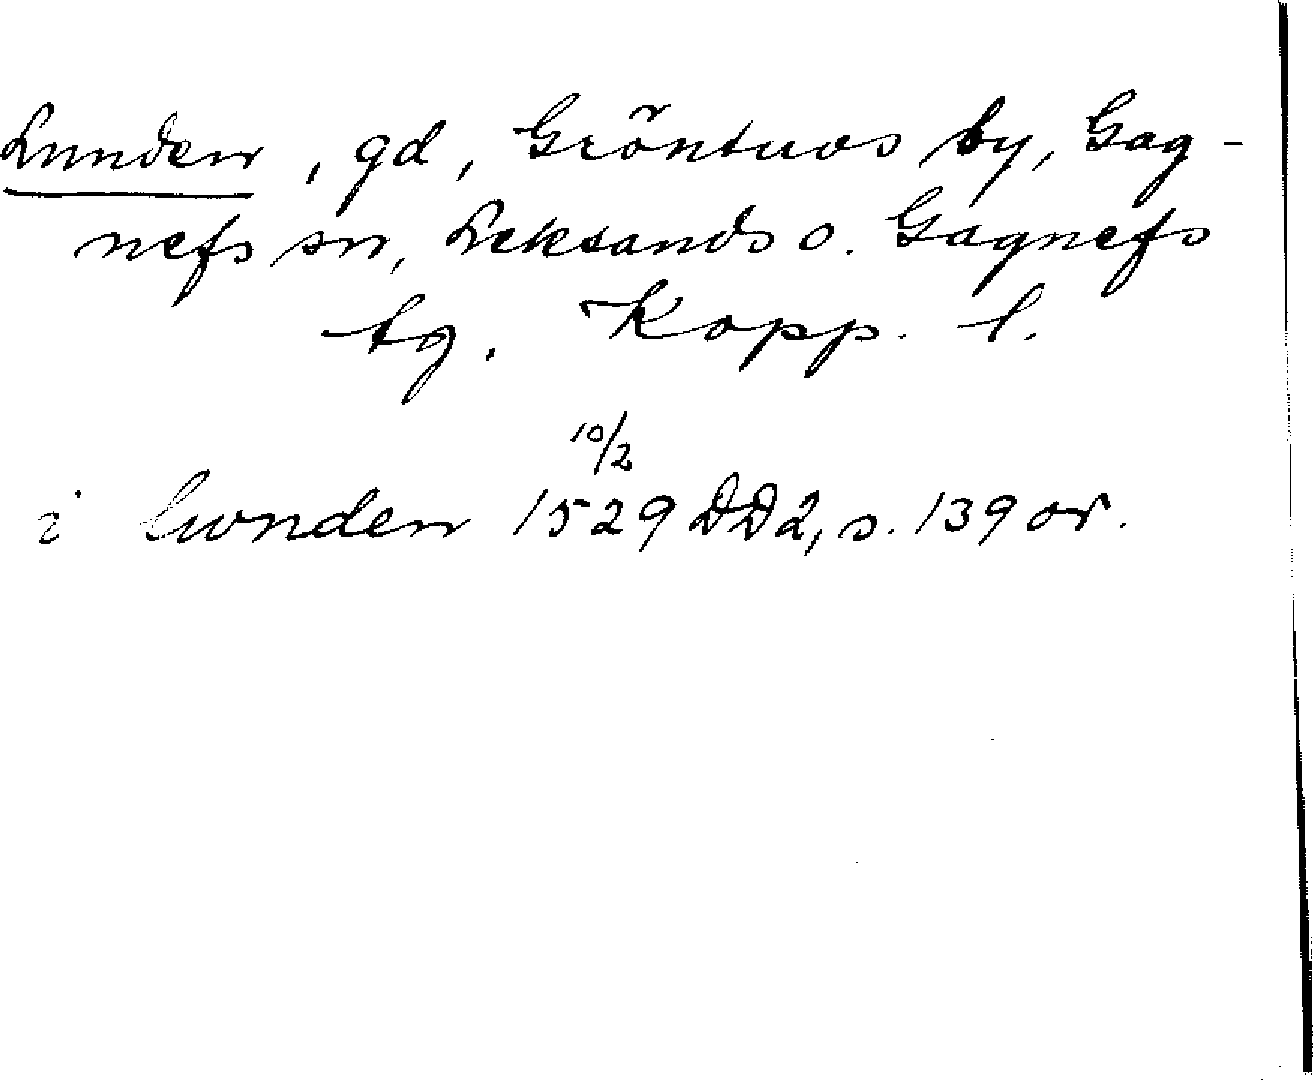 Lunden, gd, Gröntuvs by, Gag-
nefs sn, Leksands o. Gagnefs
tg. Kopp. l.
10/2
i lwnden 1529 DD2, s. 139 or.